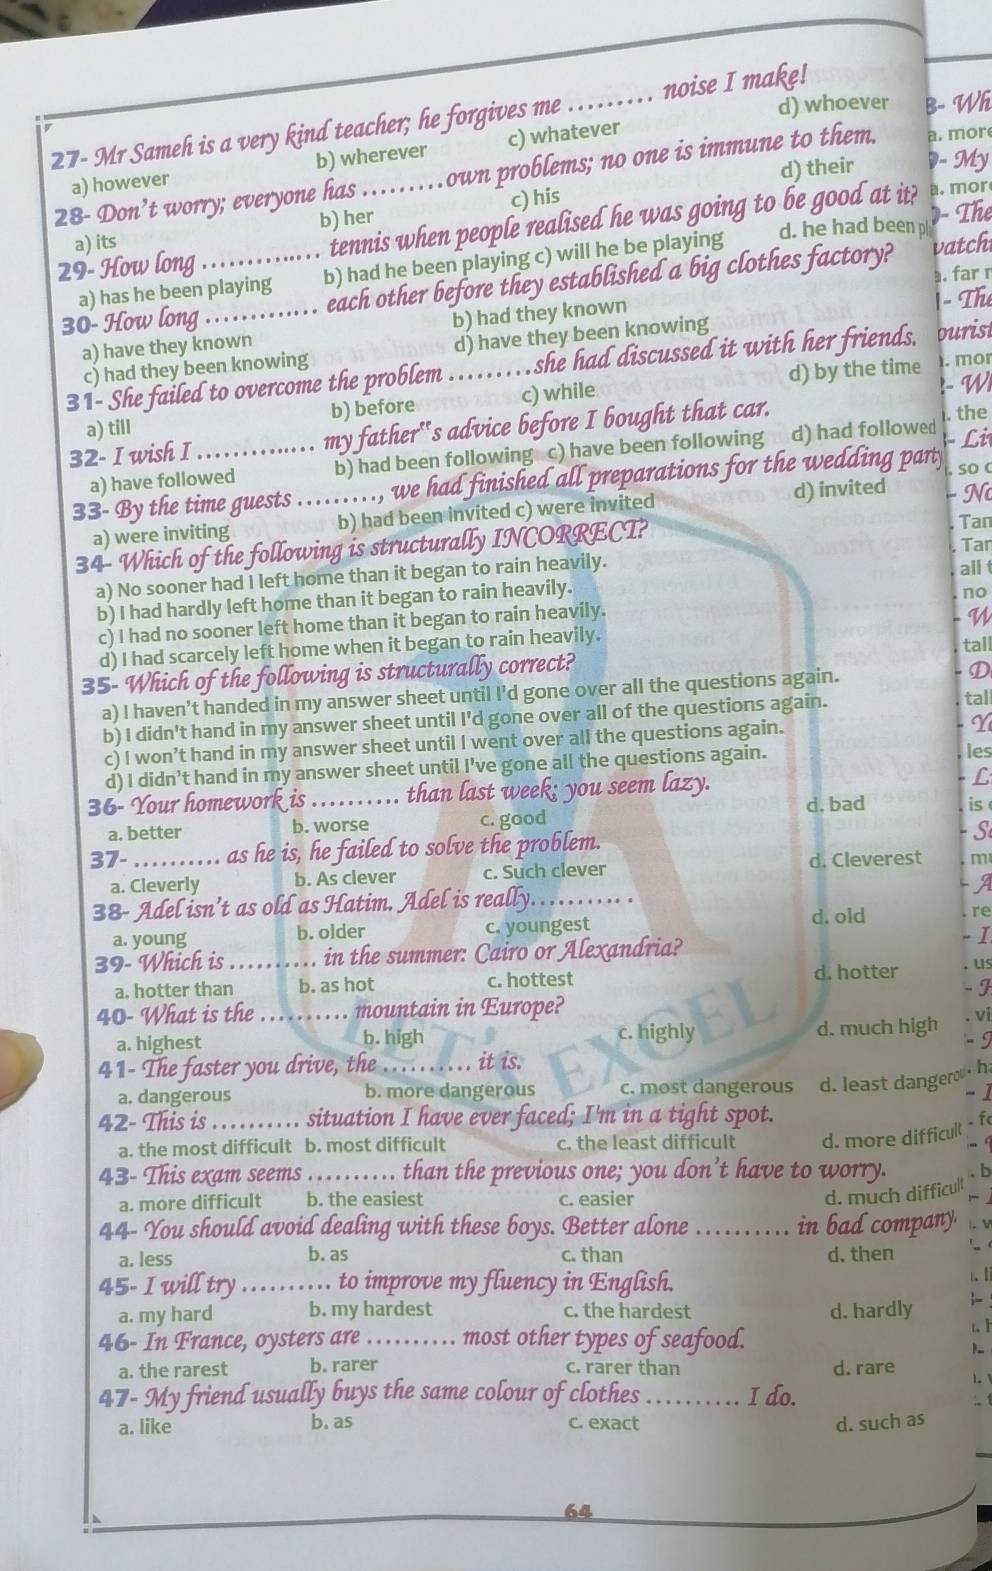 27- Mr Sameh is a very kind teacher; he forgives me ......... noise I make!
a) however b) wherever c) whatever d) whoever
28- Don't worry; everyone has .........own problems; no one is immune to them.
a) its b) her c) his d) their
29- How long ............. tennis when people realised he was going to be good at it?
a) has he been playing b) had he been playing c) will he be playing d. he had been
30- How long ............. each other before they established a big clothes factory?
a) have they known b) had they known
c) had they been knowing d) have they been knowing
31- She failed to overcome the problem .........she had discussed it with her friends.
a) till b) before c) while d) by the time
32- I wish I ............. my father"s advice before I bought that car.
a) have followed b) had been following c) have been following d) had followed
33- By the time guests ........., we had finished all preparations for the wedding party
a) were inviting b) had been invited c) were invited d) invited
34- Which of the following is structurally INCORRECT?
a) No sooner had I left home than it began to rain heavily.
b) I had hardly left home than it began to rain heavily.
c) I had no sooner left home than it began to rain heavily.
d) I had scarcely left home when it began to rain heavily.
35- Which of the following is structurally correct?
a) I haven't handed in my answer sheet until I'd gone over all the questions again.
b) I didn't hand in my answer sheet until I'd gone over all of the questions again.
c) I won't hand in my answer sheet until I went over all the questions again.
d) I didn't hand in my answer sheet until I've gone all the questions again.
36- Your homework is .......... than last week; you seem lazy.
a. better b. worse c. good d. bad
37- .......... as he is, he failed to solve the problem.
a. Cleverly b. As clever c. Such clever d. Cleverest
38- Adel isn't as old as Hatim. Adel is really...........
a. young b. older c. youngest d. old
39- Which is .......... in the summer: Cairo or Alexandria?
a. hotter than b. as hot c. hottest d. hotter
40- What is the .......... mountain in Europe?
a. highest b. high c. highly d. much high
41- The faster you drive, the .......... it is.
a. dangerous b. more dangerous c. most dangerous d. least dangerou
42- This is .......... situation I have ever faced; I'm in a tight spot.
a. the most difficult b. most difficult c. the least difficult d. more difficult
43- This exam seems .......... than the previous one; you don't have to worry.
a. more difficult b. the easiest c. easier d. much difficult
44- You should avoid dealing with these boys. Better alone .......... in bad company.
a. less b. as c. than d. then
45- I will try .......... to improve my fluency in English.
a. my hard b. my hardest c. the hardest d. hardly
46- In France, oysters are .......... most other types of seafood.
a. the rarest b. rarer c. rarer than d. rare
47- My friend usually buys the same colour of clothes .......... I do.
a. like b. as c. exact d. such as
LET'S EXCEL
64